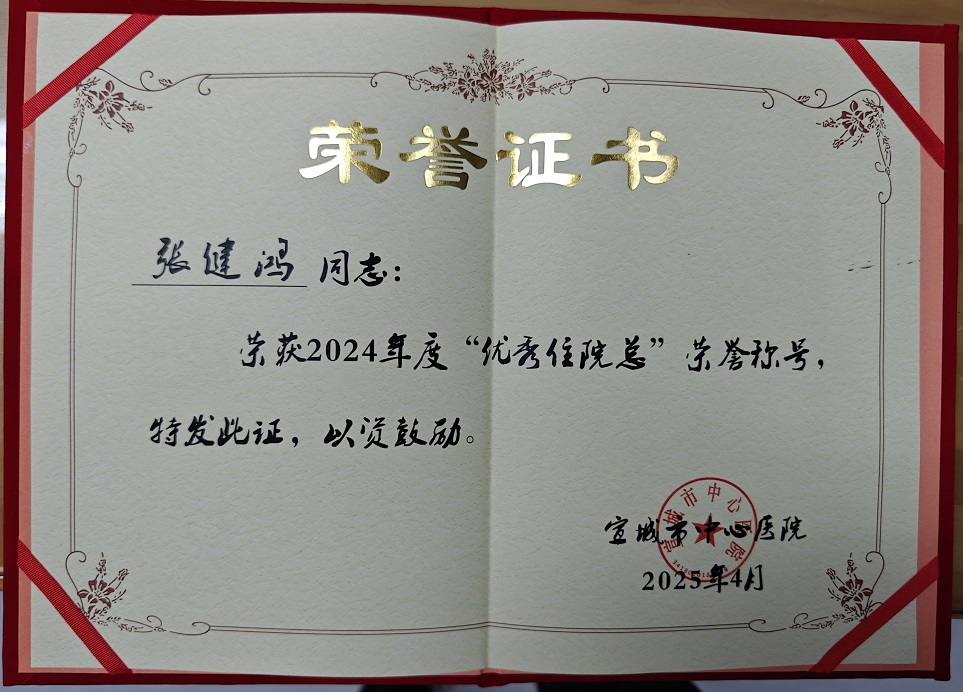 荣誉证书
张健鸿 同志：
荣获2024年度“优秀住院总”荣誉称号，
特发此证，以资鼓励。
宣城市中心医院
宣城市中心医院
2025年4月